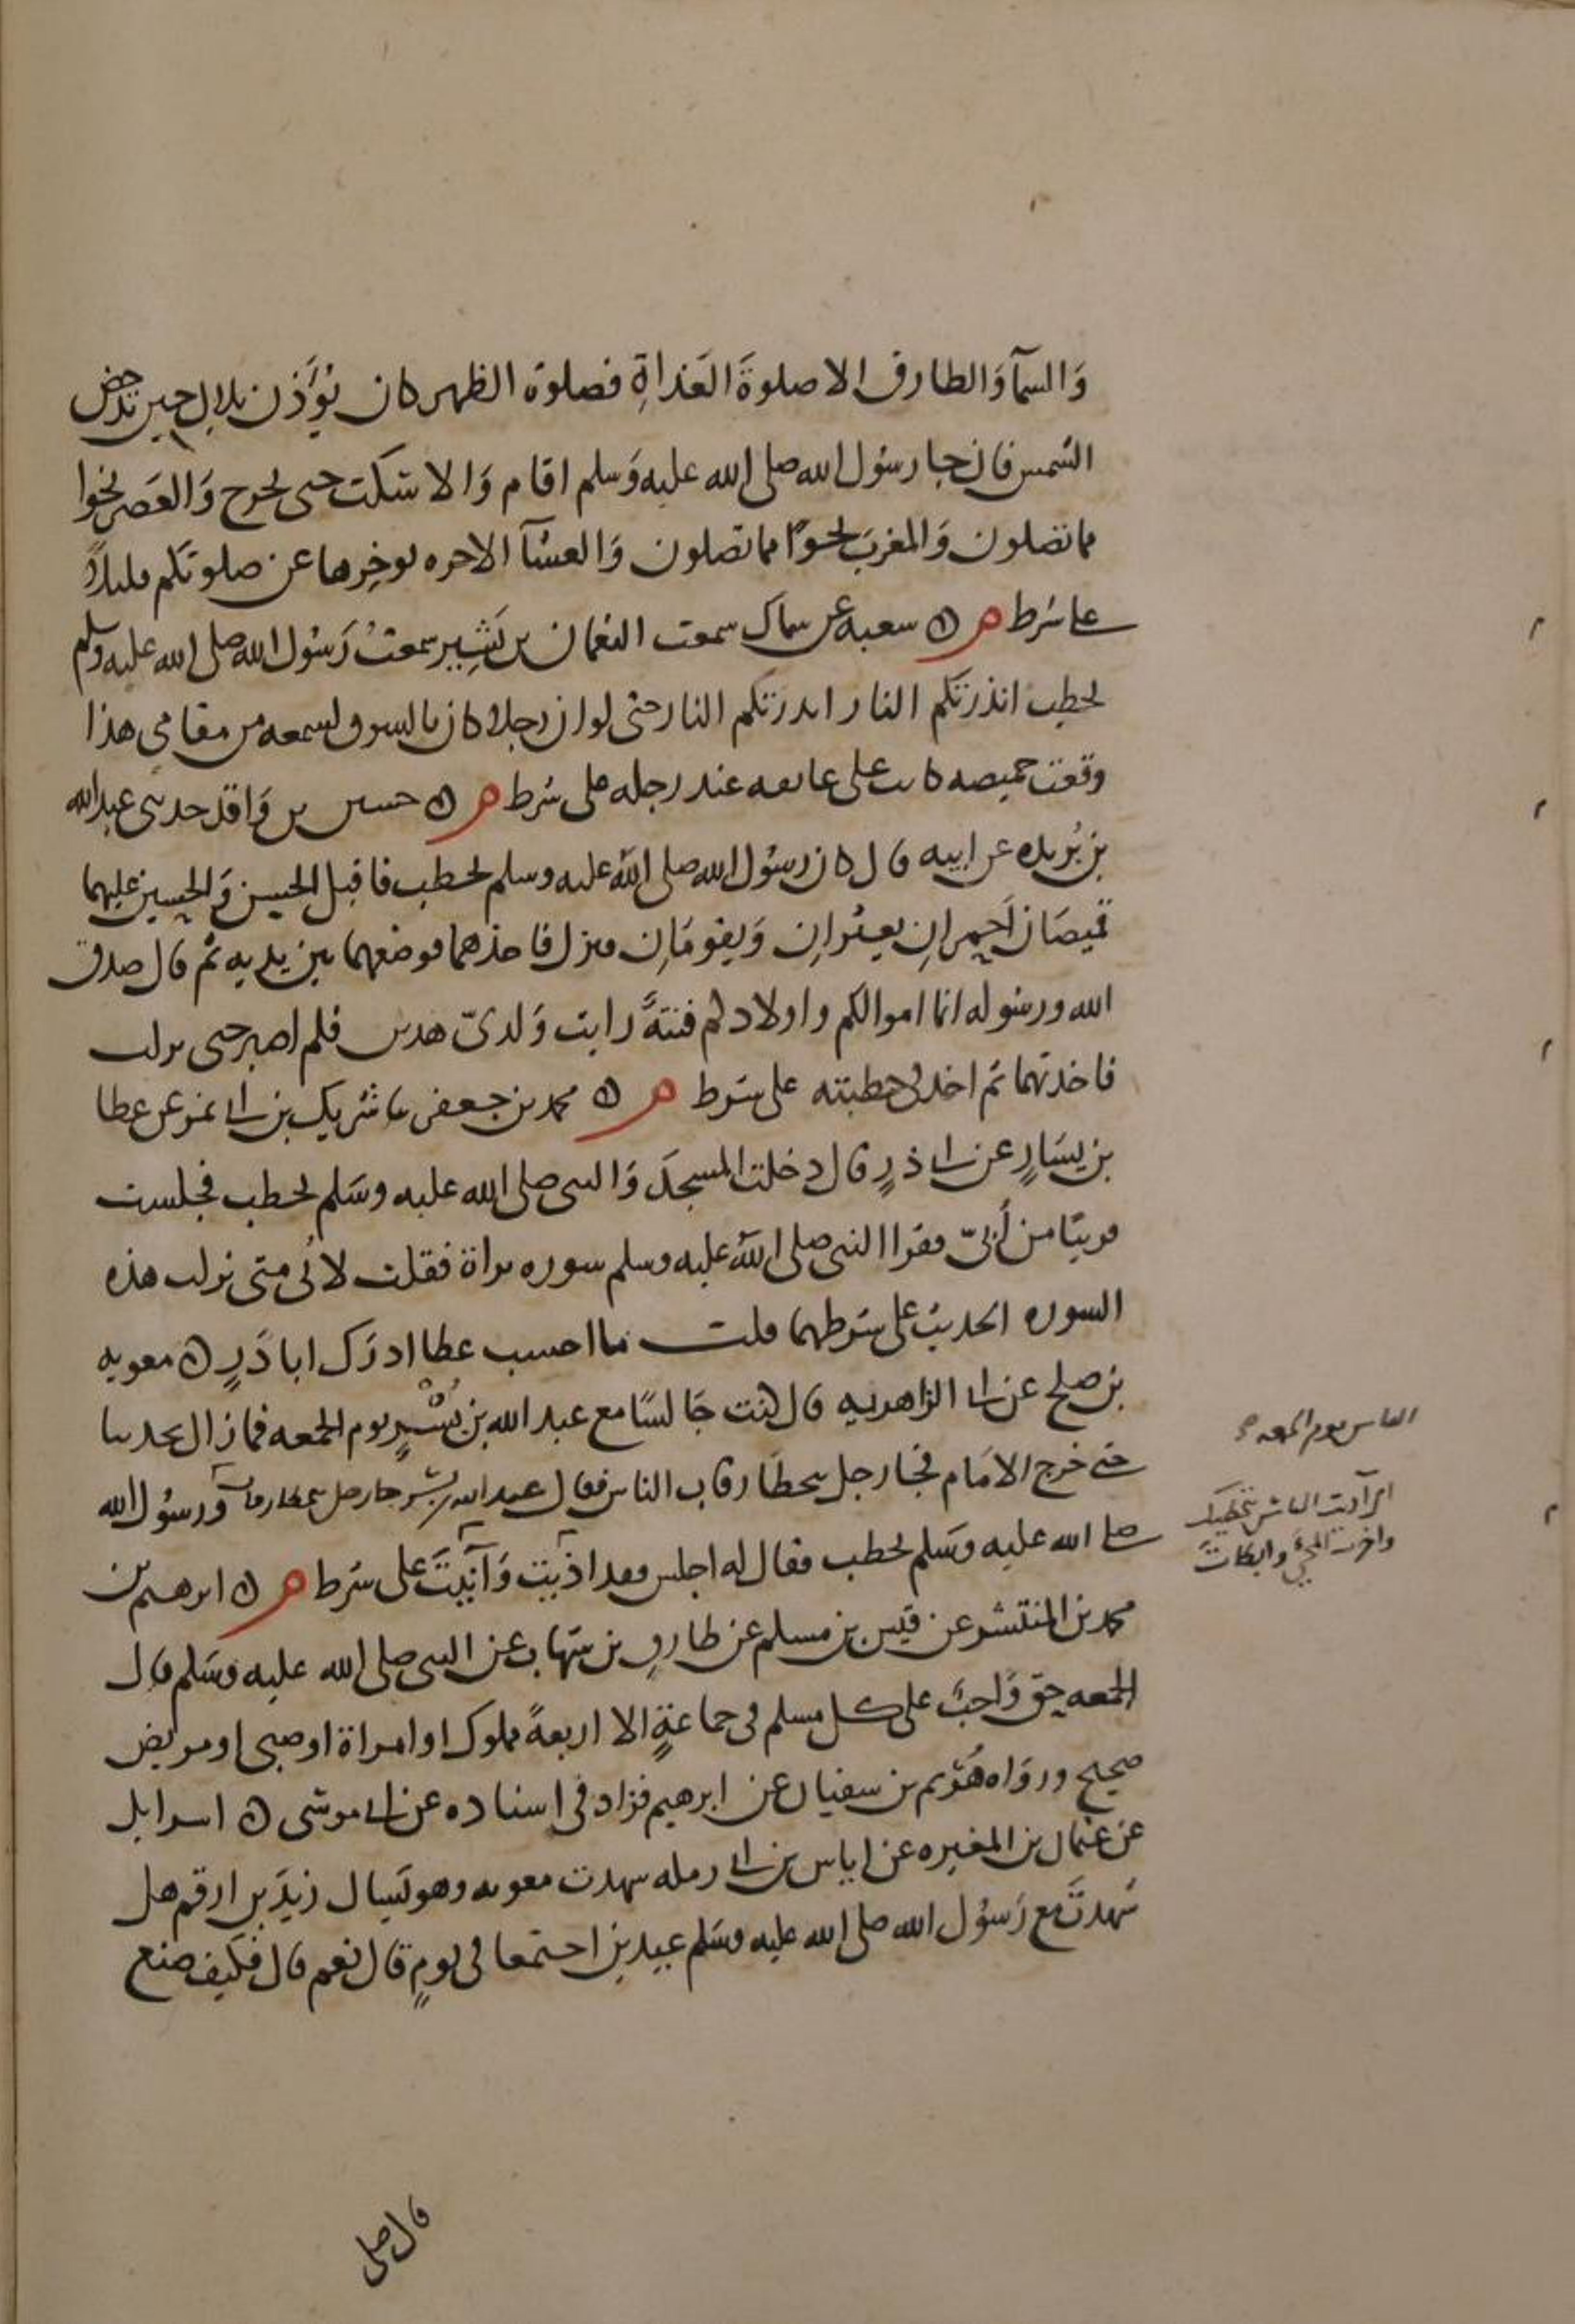 وَالسمآ وَالطارق الا صلوةَ الغَداةِ فصلوة الظهر كان يُؤَذن بلال حين تدحض
الشمس فان جا رسُول الله صلى الله عليه وَسلم اقام وَالا سَكت حتى يخرج وَالعَصر نحوا
مما تصلون وَالمغربَ نحوًا مما تصلون وَالعشآ الاخره يوخرها عن صلوتكم قليلاً
على شرط م ه شعبه عن سماك سمعت النعمان بن بَشِير سمعتُ رَسُول الله صلى الله عليه وسلم
يخطب انذرتكم النار انذرتكم النار حتى لو ان رجلا كان بالسوق لسمعه من مقامى هذا
وقعت خميصه كانت على عاتقه عند رجله على شرط م ه حسين بن وَاقد حدثنى عبد الله
بن بُريده عن ابيه قال كان رسُول الله صلى الله عليه وسلم يخطب فاقبل الحسن وَالحسين عليهما
قميصَان اَحمران يعثران وَيقومَان فنزل فاخذهما فوضعهما بين يديه ثم قال صدق
الله ورسُوله انما اموالكم واولادكم فتنةً رايت وَلدىّ هذين فلم اصبر حتى نزلت
فاخذتهما ثم اخذ فى خطبته على شرط م ه محمد بن جعفر نا شريك بن ابى نمر عن عطا
بن يسَارٍ عن ابى ذرٍ قال دخلت المسجدَ وَالنبى صلى الله عليه وسَلم يخطب فجلست
قريبًا من أُبىّ فقرا النبى صلى الله عليه وسلم سوره براة فقلت لأُبى متى نزلت هذه
السوره الحديث على شرطهما قلت ما احسب عطا ادرَك ابا ذَرٍ ه معويه
بن صلح عن ابى الزاهريه قال كنت جَالسًا مع عبد الله بن بُسْرٍ يوم الجمعه فما زال يحدثنا
حتى خرج الامَام فجا رجل يتخطَا رقاب الناس فقال عبد الله بن بسر جا رجل يتخطا رقاب ورسُول الله
الناس يوم الجمعه
صلى الله عليه وسَلم يخطب فقال له اجلس فقد اذيت وَآنَيتَ على شرط م ه ابرهيم بن
اى آذيت الناس بتخطيك
واخرت المجئَ وابطات
محمد بن المنتشر عن قيس بن مسلم عن طارق بن شهاب عن النبى صلى الله عليه وسَلم قال
الجمعه حق وَاجبٌ على كل مسلم فى جماعةٍ الا اربعةً مملوك او امراة او صبى او مريض
صحيح ورَوَاه هُرَيم بن سفيان عن ابرهيم فزاد فى اسناده عن ابى موسى ه اسرايل
عن عثمان بن المغيره عن اياس بن ابى رمله شهدت معويه وهو يَسال زيدَ بن ارقم هل
شهدتَ مع رَسُول الله صلى الله عليه وسَلم عيدين اجتمعا فى يومٍ قال نعم قال فكيف صنع
قال صلى